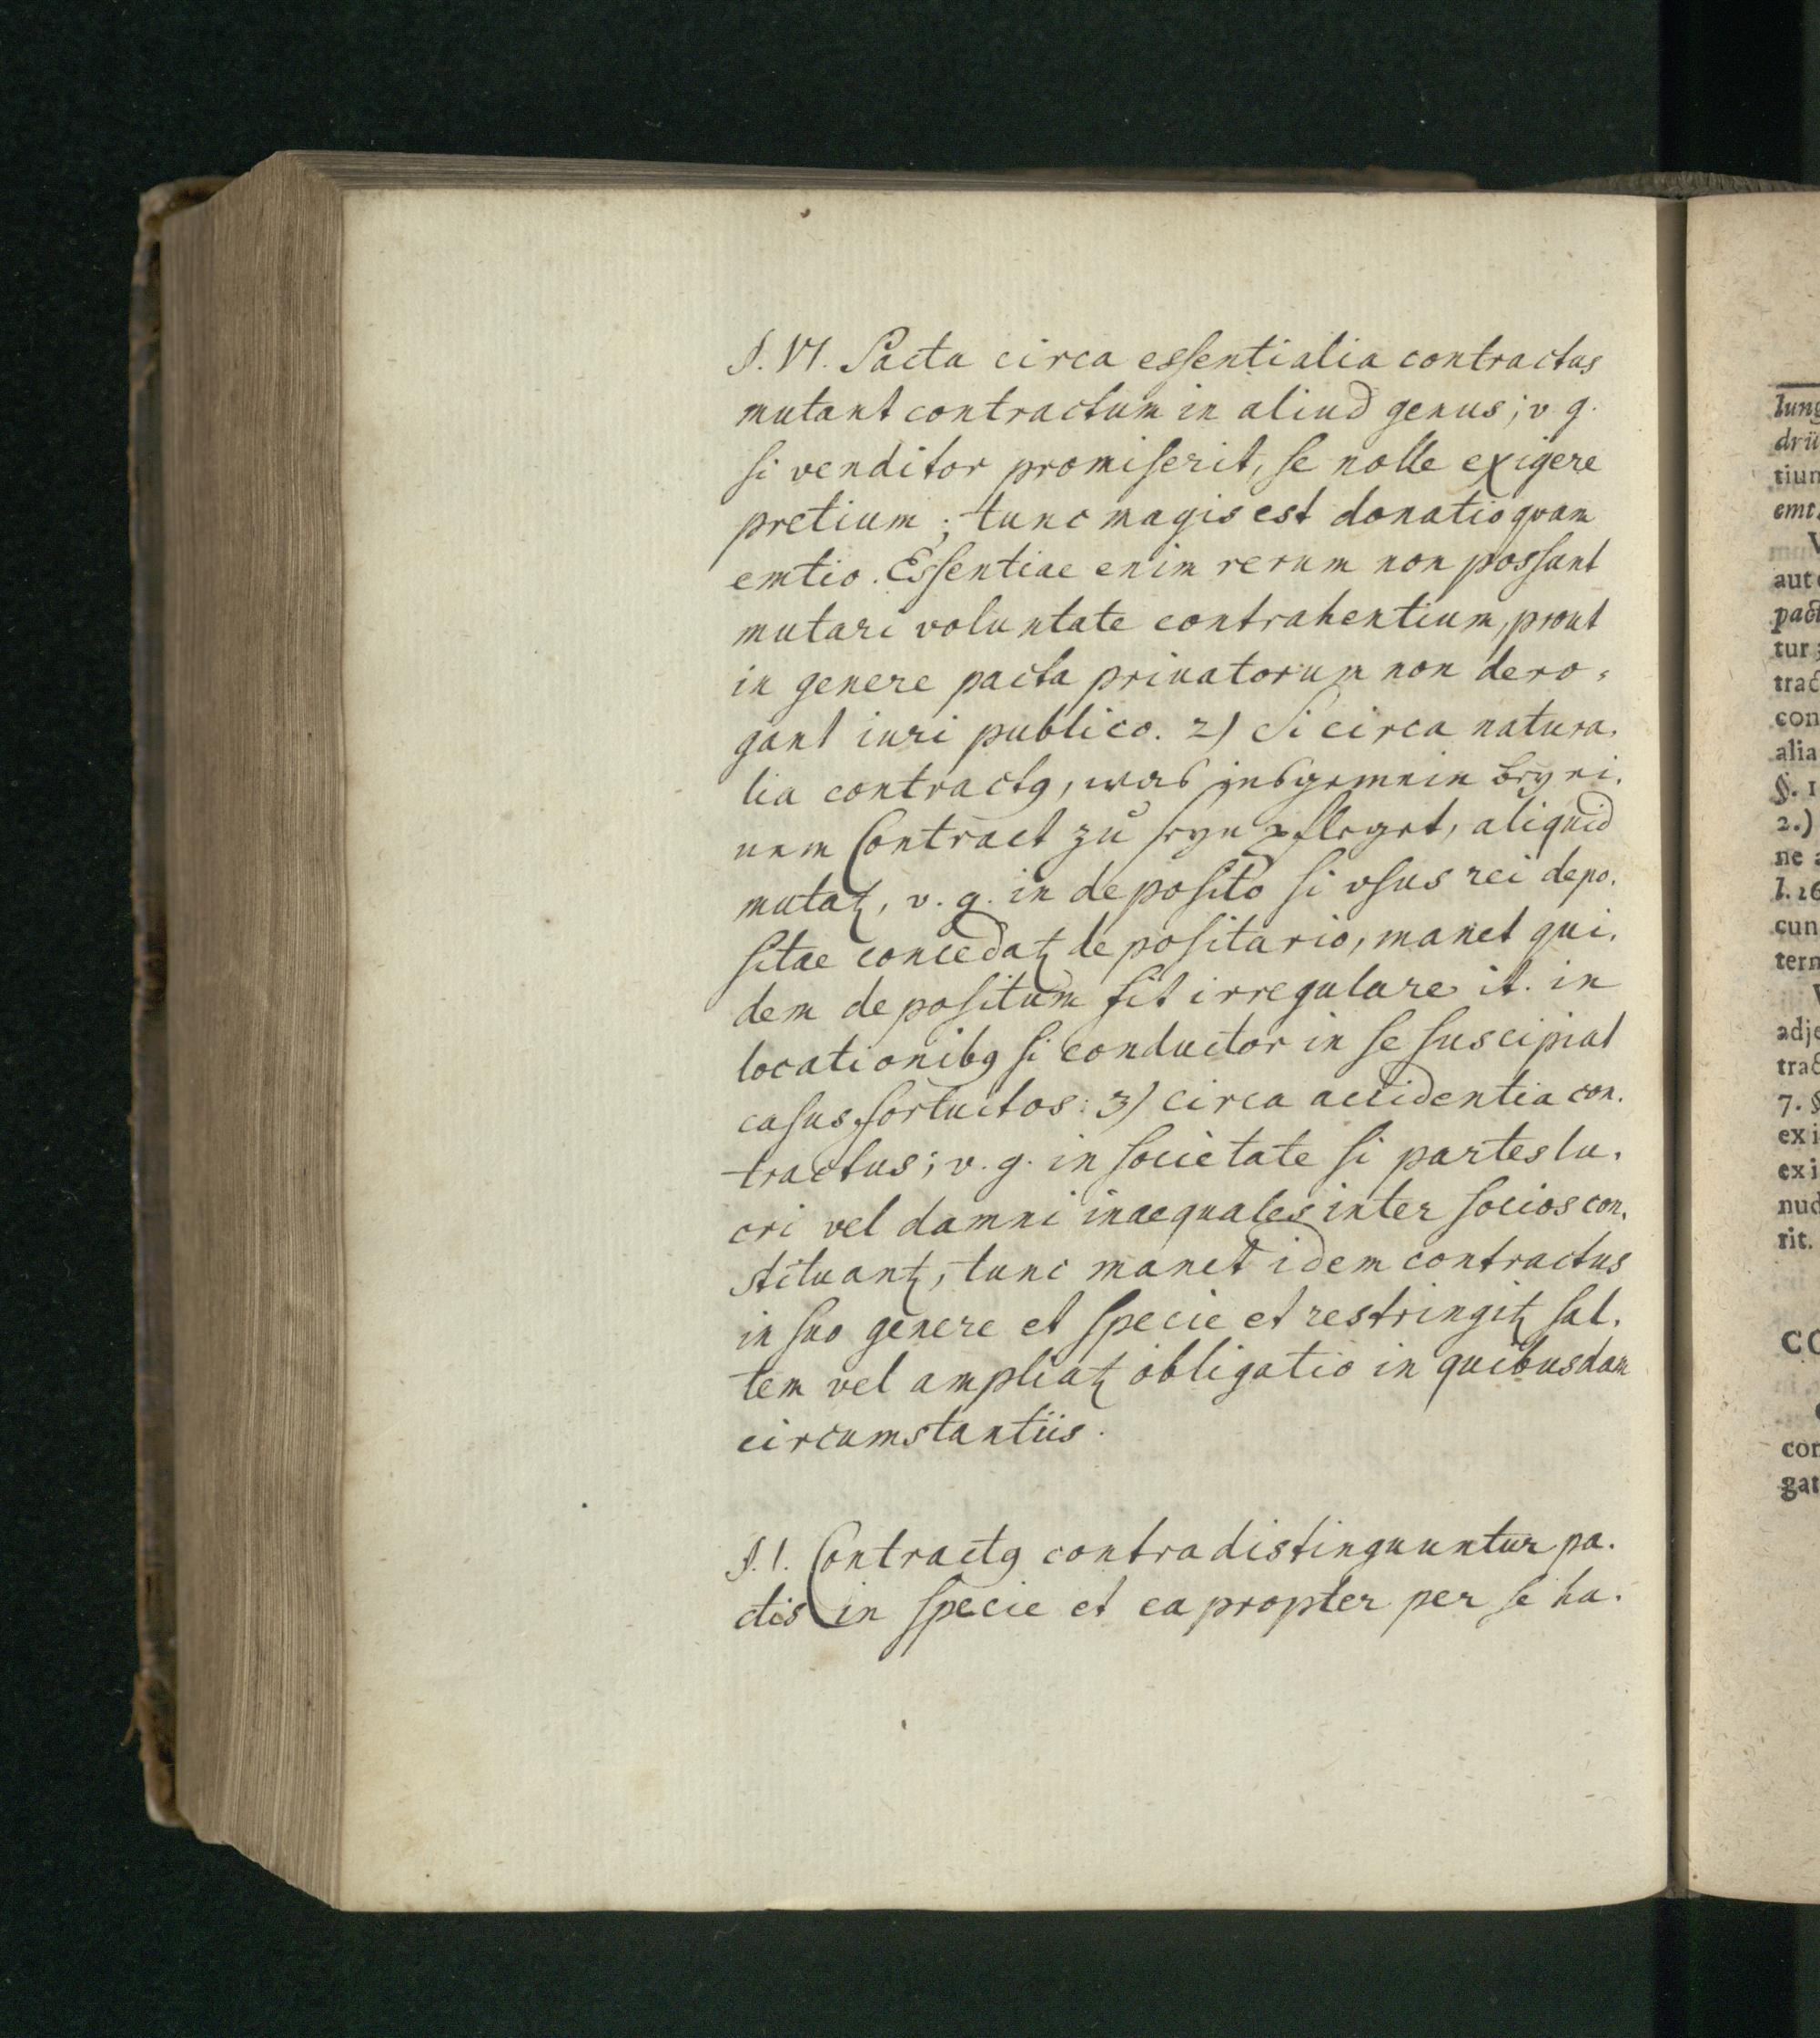 §. VI. Pacta circa essentialia contractus
mutant contractum in aliud genus; v. g.
si venditor promiserit, se nolle exigere
pretium; tunc magis est donatio qvam
emtio. Essentiae enim rerum non possunt
mutari voluntate contrahentium, prout
in genere pacta priuatorum non dero-
gant iuri publico. 2) Si circa natura-
lia contractꝰ, was insgemein bey ei-
nem Contract zu seyn pfleget, aliquid
mutatꝛ, v. g. in deposito si vsus rei depo-
sitae concedatꝛ depositario, manet qui-
dem depositum sit irregulare it. in
locationibꝰ si conductor in se suscipiat
casus fortuitos: 3) circa accidentia con-
tractus; v. g. in societate si partes lu-
cri vel damni inaequales inter socios con-
stituantꝛ, tunc manet idem contractus
in suo genere et specie et restringitꝛ sal-
tem vel ampliatꝛ obligatio in quibusdam
circumstantiis.
§. I. Contractꝰ contradistinguuntur pa-
ctis in specie et ea propter per se ha-
lung
drü
tiun
emt.
aut
pact
tur;
trac
con
alia
§. 1
2.)
ne
l. 16
cun
tern
adje
trac
7. §
ex i
ex i
nud
rit.
CO
con
gat